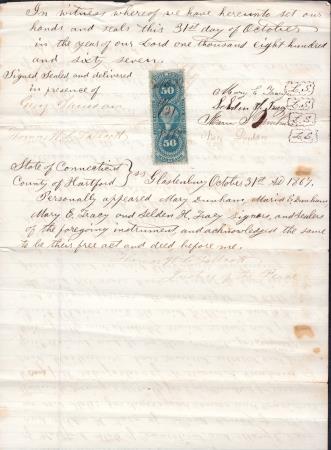 In witness whereof we have hereunto set our
hands and seals this 31st day of October
in the year of our Lord one thousand eight hundred
and sixty seven.
Signed Sealed and delivered
in presence of
Mary E Tracy L.S.
Selden H. Tracy L.S.
L.S.
Dunham L.S.
50
50
State of Connecticut
County of Hartford } ss Glastenbury October 31st AD 1867.
Personally appeared Mary Dunham, Maria E Dunham
Mary E. Tracy and Selden H. Tracy signers, and sealers
of the foregoing instrument, and acknowledged the same
to be their free act and deed before me.
Justice of the Peace